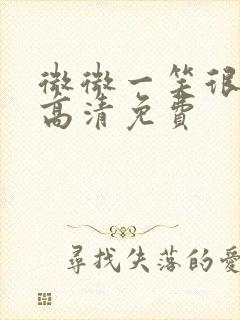 微微一笑很
高清免費
尋找失落的愛